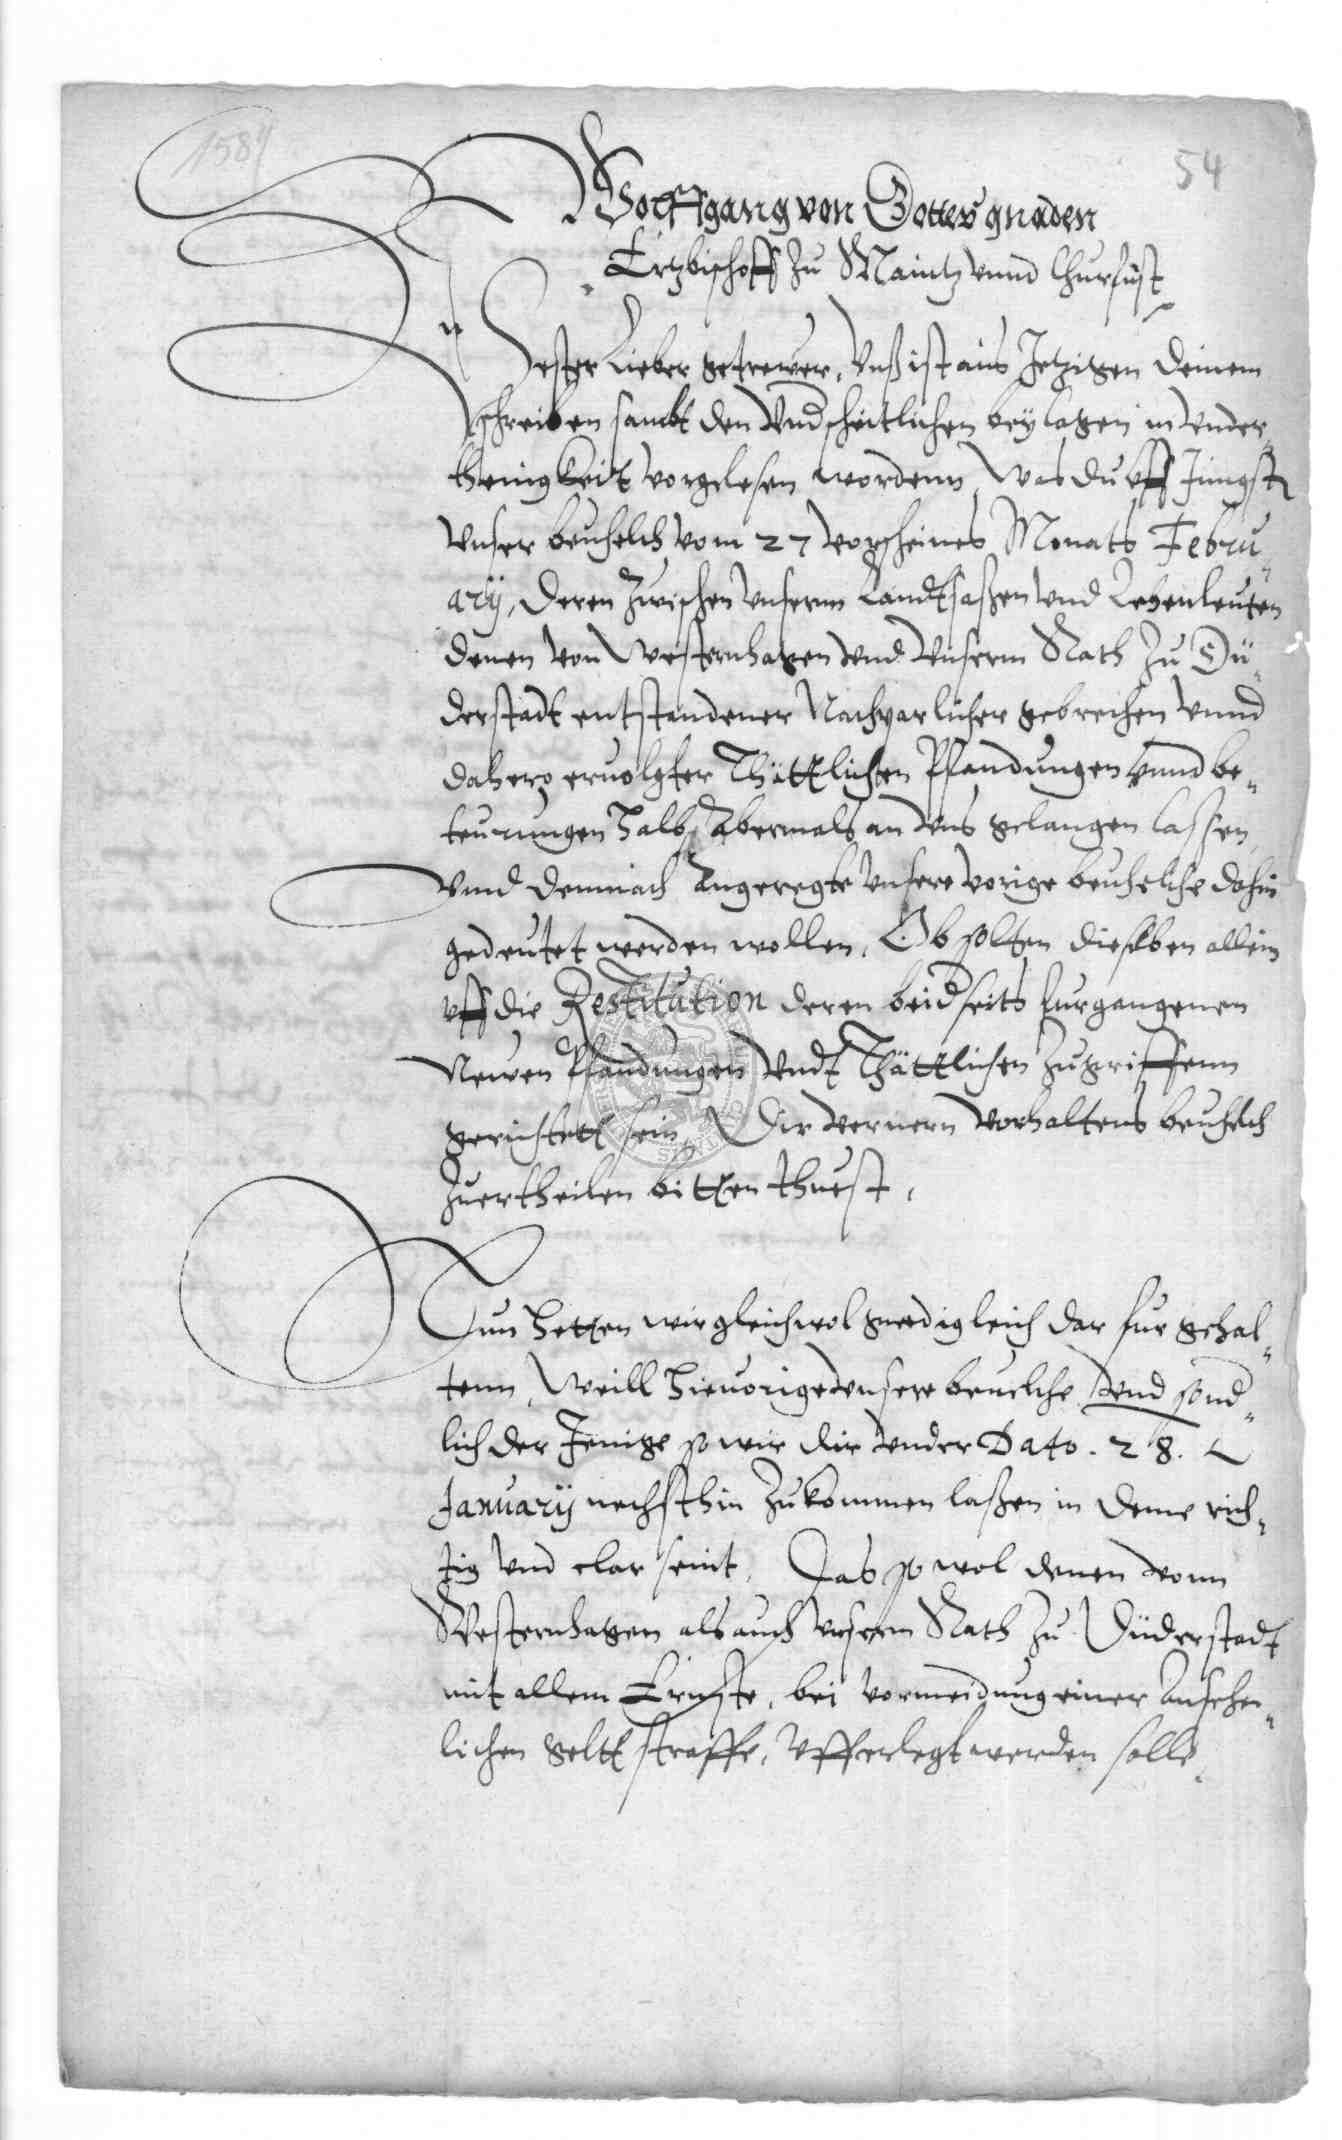 1584
54
Wolffgang von Gottes gnaden
Ertzbischoff zu Maintz vnnd Churfürst
Vester Lieber getrewer, Vnß ist aus Jetzigen deinem
schreiben sambt den Vndscheitlichen beylagen in vnder„
thenigkeit vorgelesen wordenn, Was du vff Jungst
vnser beuhelch vom 27 vorscheines Monats Febru„
arij, deren zwischen vnsernn Landtsaßen vnd Lehenleuten
denen von Westernhagen vnd vnserm Rath zu Du„
derstadt entstandener Nachparlicher gebrechen vnnd
dahero ervolgter Thättlichen Pfandungen vnnd be„
teurungen halb, Abermals an vns gelangen lassen,
vnnd demnach angeregte vnsere vorige beuhelche dahin
gedeutet werden wollen, Ob solten dieselben allein
vff die Restitution deren beidseits furgangenen
Newen Pfandungen vndt Thättlichen zugriffenn
gerichtett sein, Dir vernern vorhaltens beuhelch
zuertheilen bitten thuest,
Nun hetten wir gleichwol gnedigleich dar fur gehal„
tenn, Weill hieuorige vnsere beuelche vnd sond„
lich der Jenige so wir dir vnder Dato. 28.
January nechsthin zukommen laßen in deme rich„
tig vnd clar seint, Das so wol denen vonn
Westernhagen als auch vnserm Rath zu Duderstadt
mit allem Ernste, bei vormeidung einer Ansehen„
lichen gelttstraffe, Vfferlegt werden solle